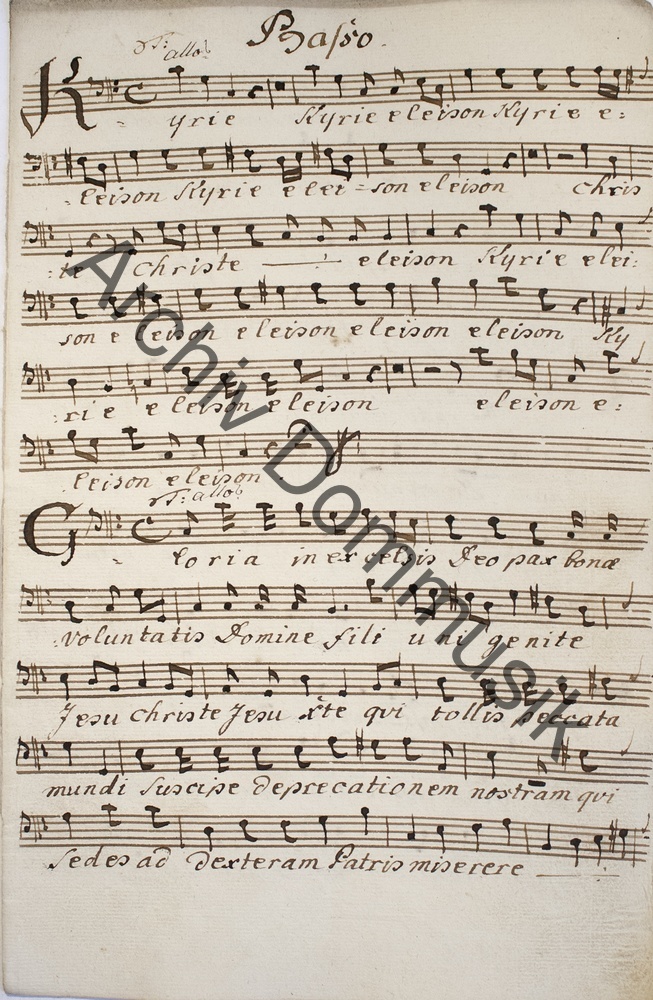 Basso.
T: allo
Kyrie Kyrie eleison Kyrie e:
leison Kyrie elei=son eleison Chris
:te Christe eleison Kyrie elei:
son e leison eleison eleison eleison Ky
:rie eleison eleison eleison e:
leison eleison.
T: allo
Gloria in excelsis Deo pax bonæ
:voluntatis Domine fili uni genite
Jesu Christe Jesu xte qui tollis peccata
mundi Suscipe deprecationem nostram qui
Sedes ad dexteram Patris miserere
Archiv Dommusik